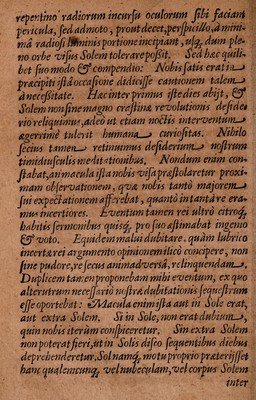 repentino radiorum incursu oculorum sibi faciant
pericula, sed admoto, prout decet, perspicillo, à mini-
ma radiosi luminis portione incipiant, usq; dum ple-
no orbe visus Solem tolerare possit. Sed hæc quili-
bet suo modo & compendio: Nobis satis erat in
præcipiti istâ occasione didicisse cautionem talem
à necessitate. Hac inter primus iste dies abijt, &
Solem non sine magno crastinæ revolutionis deside-
rio reliquimus, adeò ut etiam noctis interventum
ægerrimè tulerit humana curiositas. Nihilo
secius tamen retinuimus desiderium nostrum
timidiusculis meditationibus. Nondum enim con-
stabat, an macula ista nobis visa præstolaretur proxi-
mam observationem, quæ nobis tantò majorem
sui expectationem afferebat, quantò in tantâ re era-
mus incertiores. Eventum tamen rei ultrò citroq;
habitis sermonibus quisq; pro suo æstimabat ingenio
& voto. Equidem malui dubitare, quàm lubrico
incertæ rei argumento opinionem illicò concipere, non
sine pudore, re secus animadversâ, relinquendam.
Duplicem tamen proponebam mihi eventum, ex quo
alterutrum necessariò nostræ dubitationis sequestrum
esse oportebat: Macula enim ista aut in Sole erat,
aut extra Solem. Si in Sole, non erat dubium,
quin nobis iterùm conspiceretur. Sin extra Solem
non poterat fieri, ut in Solis disco sequentibus diebus
deprehenderetur. Sol namq; motu proprio præterijsset
hanc qualemcunq; vel nubeculam, vel corpus Solem
inter